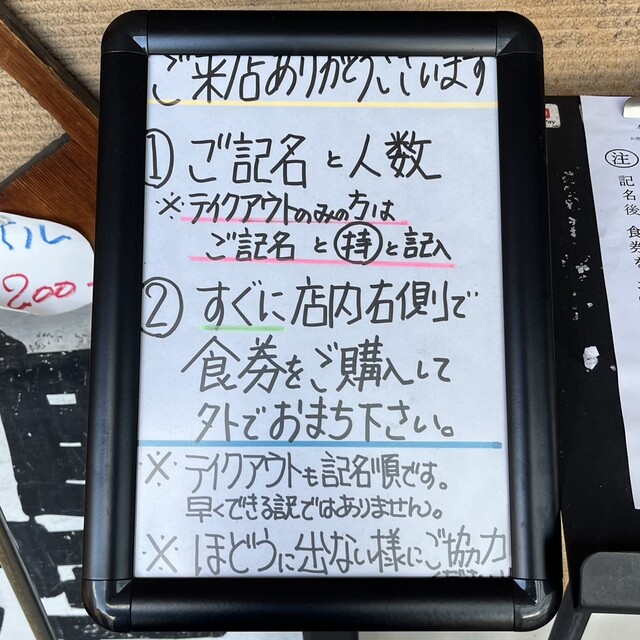 ご来店ありがとうございます
① ご記名と人数
※テイクアウトのみの方は
ご記名と持と記入
② すぐに店内右側で
食券をご購入して
外でおまち下さい。
※ テイクアウトも記名順です。
早くできる訳ではありません。
※ ほどうに出ない様にご協力
200-
注
記名後
食券を